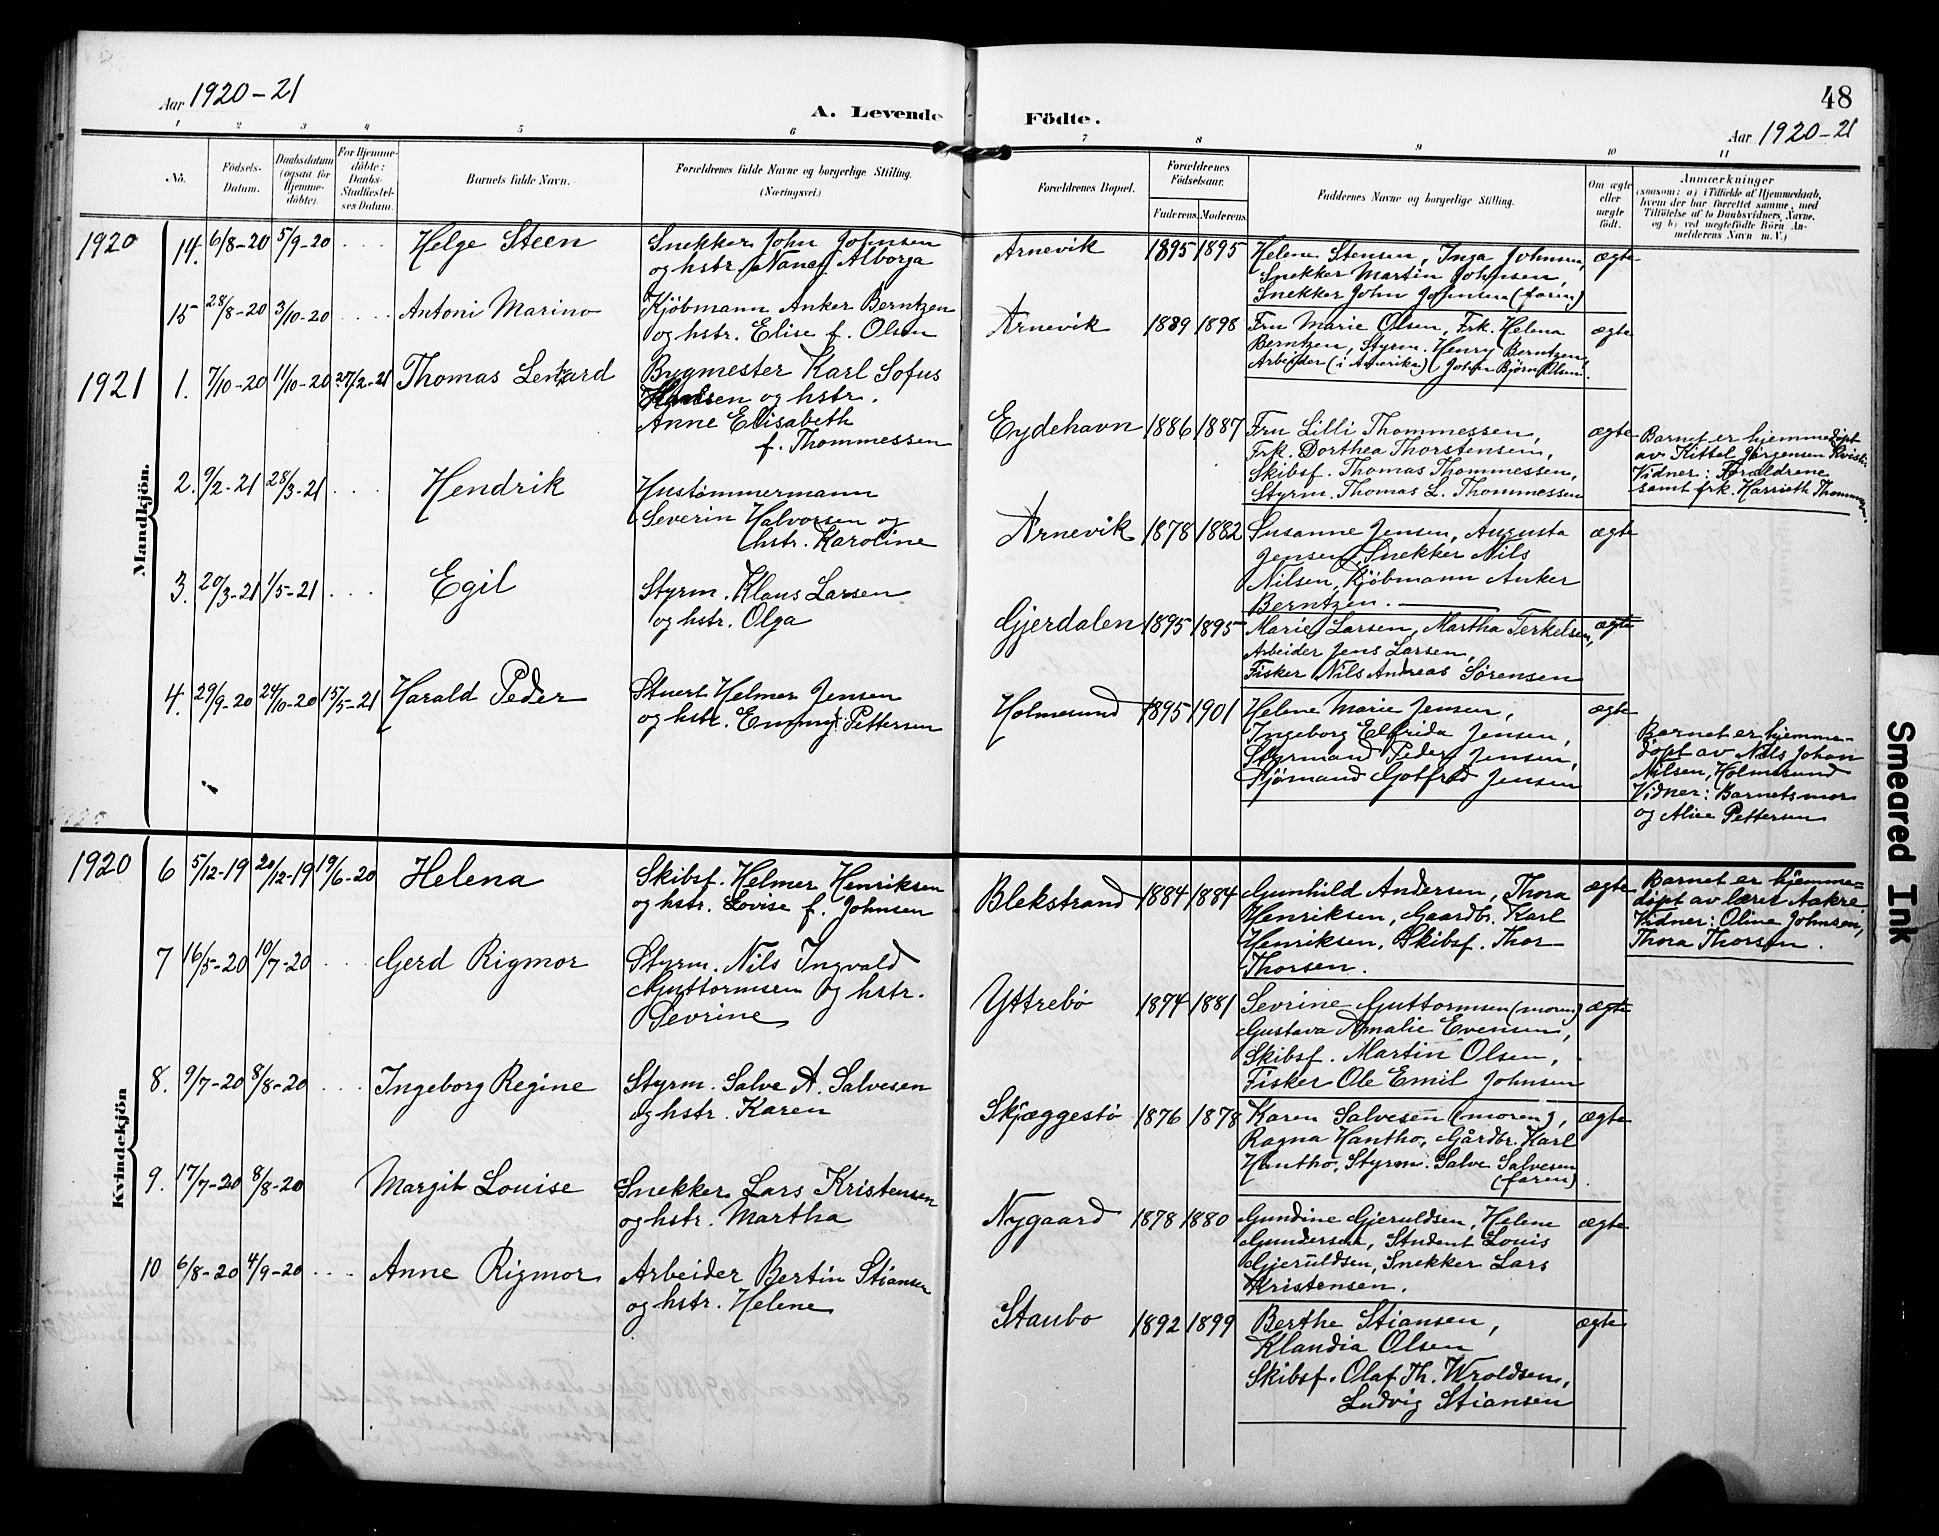 48
Aar 1920-21
A. Levende
Födte.
Aar 1920-21
1 2 3 4 5 6 7 8 9 10 11
No.
Födsels-
Datum.
Daabsdatum
(ogsaa for
Hjemme-
döbte).
For Hjemme-
döbte:
Daabs-
Stadfæstel-
ses Datum.
Barnets fulde Navn.
Forældrenes fulde Navne og borgerlige Stilling.
(Næringsvei.)
Forældrenes Bopæl.
Forældrenes
Födselsaar.
Faderens. Moderens.
Faddernes Navne og borgerlig Stilling.
Om ægte
eller
uægte
födt.
Anmærkninger
(saasom: a) i Tilfælde af Hjemmedaab,
hvem der har forrettet samme, med
Tilföielse af to Daabsvidners Navne,
og b) ved uægtefödte Börn An-
melderens Navn m. V.)
Mandkjön.
1920
14. 6/8-20 5/9-20 . . . Helge Steen
Snekker John Johnsen
og hstr. Nancy Alborga
Arnevik 1895 1895
Helene Stensen, Inga Johnsen,
Snekker Martin Johnsen,
Snekker John Johnsen (faren)
ægte
15 28/8-20 3/10-20 . . . . Antoni Marino
Kjöbmann Anker Berntzen
og hstr. Elise f. Olsen
Arnevik 1889 1898
Fru Marie Olsen, Frk. Helma
Berntzen, Styrm. Henry Berntzen,
Arbeider (i Amerika) John Bjørn Olsen.
ægte
1921
1. 7/10-20 11/10-20 27/2-21 Thomas Lenhard
Bygmester Karl Sofus
og hstr.
Anne Elisabeth
f. Thommessen
Eydehavn 1886 1887
Fru Lilli Thommessen,
Frk. Dorthea Thorstensen,
Skibsf. Thomas Thommessen,
Styrm. Thomas L. Thommessen
ægte
Barnet er hjemmedöpt
av Kittel Jørgensen
Vidner: Foræeldrene
samt frk. Harrieth
2. 9/2-21 28/3-21 . . . Hendrik
Hustømmermann
Severin Halvorsen og
hstr. Karoline
Arnevik 1878 1882
Susanne Jensen, Augusta
Jensen, Snekker Nils
Nilsen, Kjöbmann Anker
Berntzen.
ægte
3. 20/3-21 1/5-21 . . . Egil
Styrm. Klaus Larsen
og hstr. Olga
Gjerdalen 1895 1895
Marie Larsen, Martha Terkelsen,
Arbeider Jens Larsen,
Fisker Nils Andreas Sørensen
ægte
4. 29/9-20 24/10-20 15/5-21 Harald Peder
Stuert Helmer Jensen
og hstr. Emmy f. Pettersen
Holmesund 1895 1901
Helene Marie Jensen,
Ingeborg Elfrida Jensen,
Styrmand Peder Jensen,
Sjömand Gotfred Jensen
ægte
Barnet er hjemme-
döpt av Nils Johan
Nilsen, Holmesund
Vidner: Barnets mor
og Alice Pettersen
Kvindekjön
1920
6 5/12-19 20/12-19 19/6-20 Helena
Skibsf. Helmer Henriksen
og hstr. Lovise f. Johnsen
Blekstrand 1884 1884
Gunhild Andersen, Thora
Henriksen, Gaardbr. Karl
Henriksen, Skibsf. Thor
Thorsen.
ægte
Barnet er hjemme-
döpt av lærer Aakre
Vidner: Oline Johnsen,
Thora Thorsen.
7 16/5-20 10/7-20 . . . Gerd Rigmor
Styrm. Nils Ingvald
Guttormsen og hstr.
Sevrine
Yttrebö 1874 1881
Sevrine Guttormsen (moren)
Gustava Amalie Evensen,
Skibsf. Martin Olsen,
Fisker Ole Emil Johnsen
ægte
8. 9/7-20 8/8-20 . . . Ingeborg Regine
Styrm. Salve A. Salvesen
og hstr. Karen
Skjæggestö 1876 1878
Karen Salvesen (moren),
Ragna Hantho, Gårdbr. Karl
Hantho, Styrm. Salve Salvesen
(faren).
ægte
9. 17/7-20 8/8-20 Margit Louise
Snekker Lars Kristensen
og hstr. Martha
Nygaard 1878 1880
Gundine Gjeruldsen, Helene
Gundersen, Student Louis
Gjeruldsen, Snekker Lars
Kristensen.
ægte
10 6/8-20 4/9-20 . . . Anne Rigmor
Arbeider Bertin Stiansen
og hstr. Helene
Staubo 1892 1899
Berthe Stiansen,
Klandia Olsen
Skibsf. Olaf Th. Wroldsen,
Ludvig Stiansen
ægte
Smeared Ink